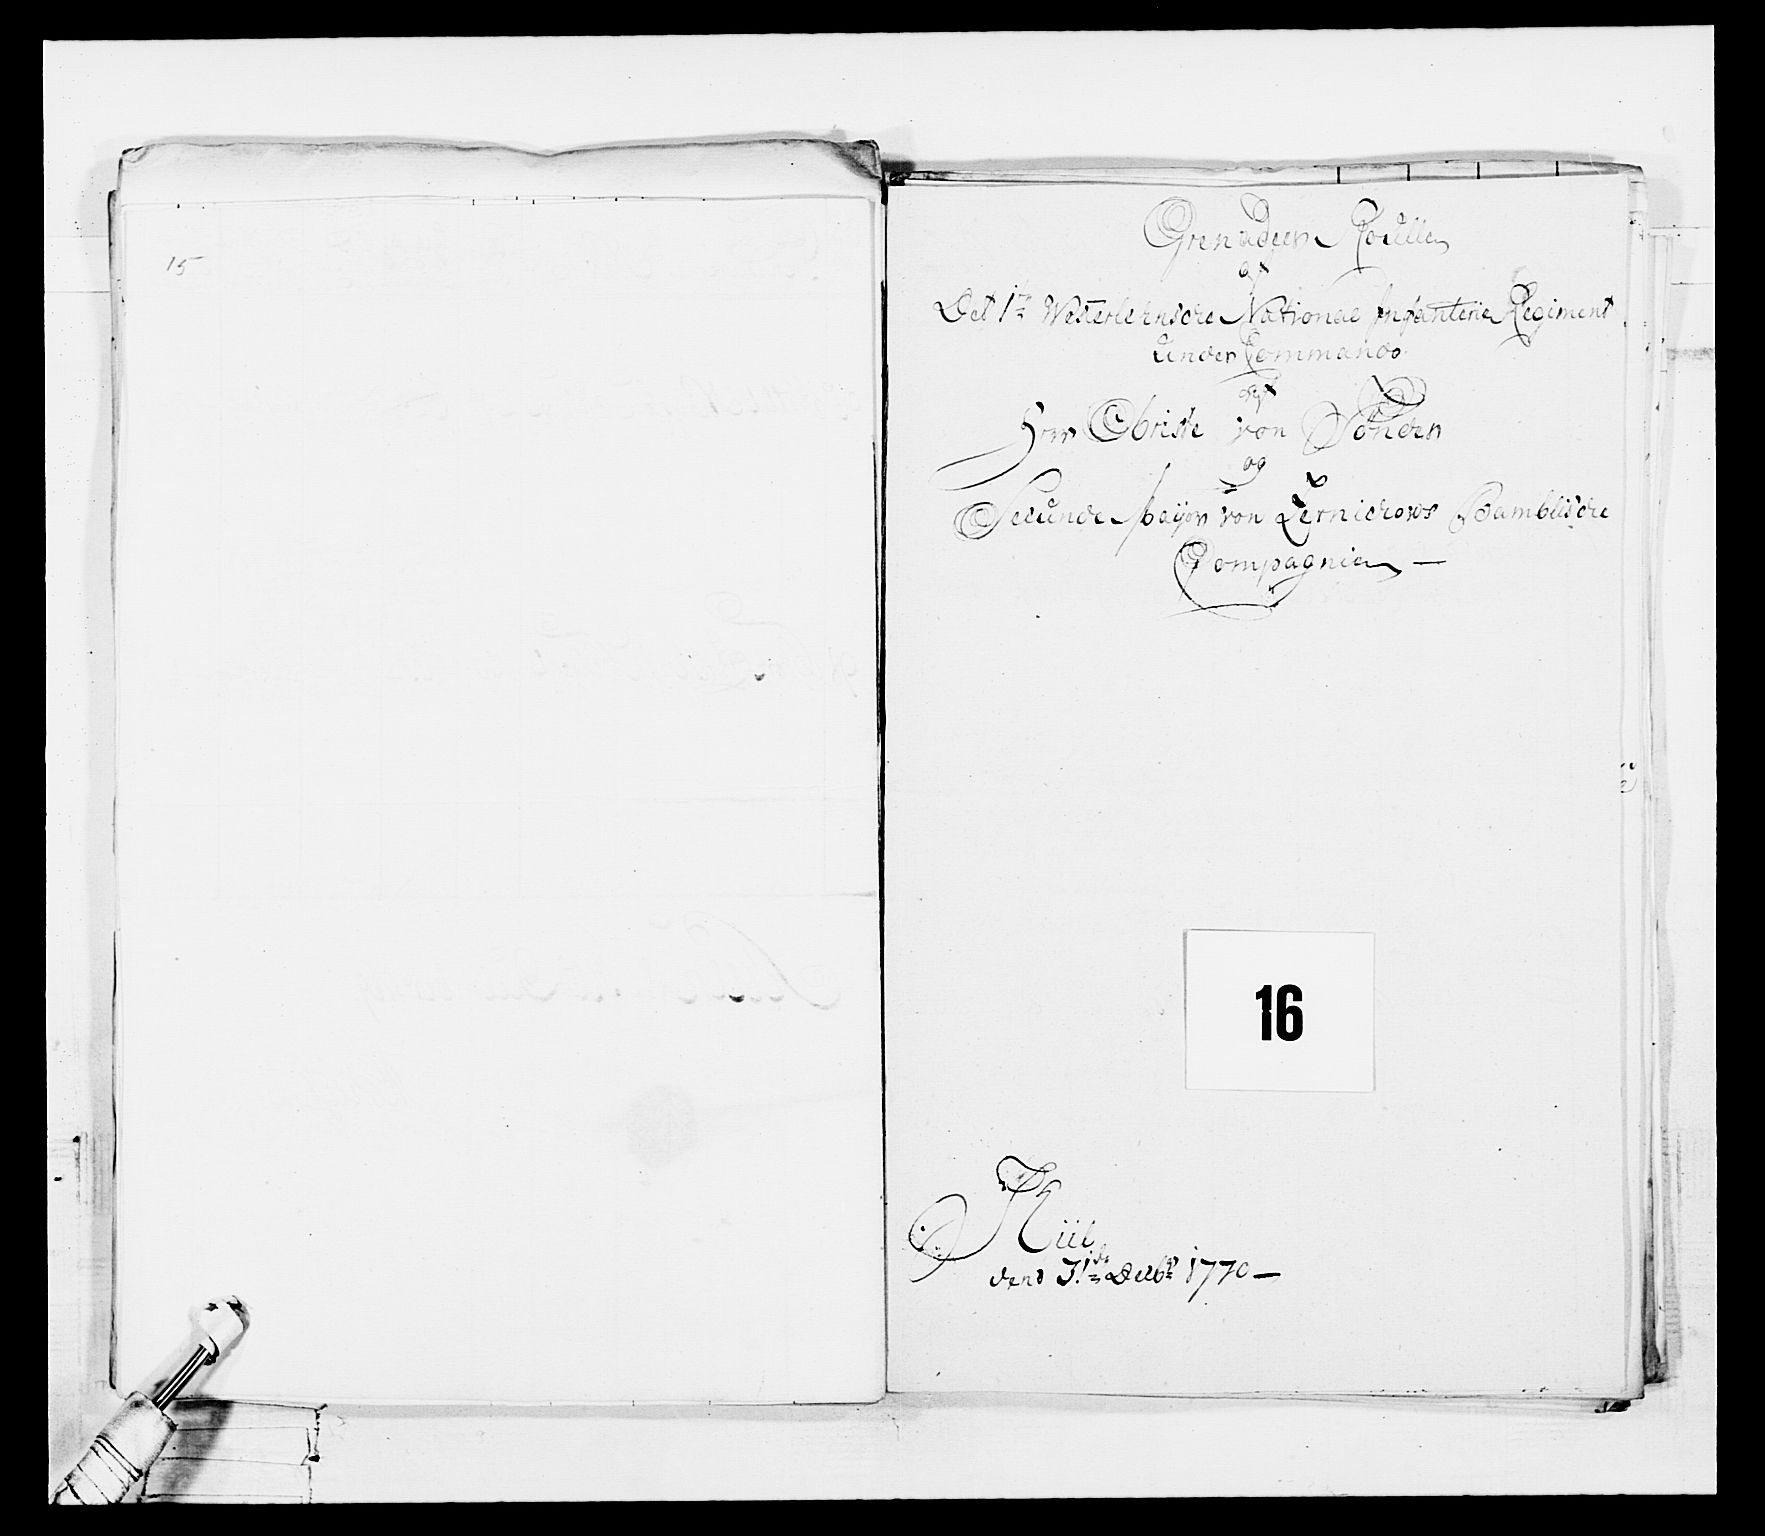 15
Grenadeer Roulle
af
Det 1te Westerlehnsche National Infanterie Regiment
under Commando
af
Herr Obriste von Sÿnder
og
Secunde Major von Zernichows Bamblische
Compagnie —
16
Hiil
dend 31de Decbr 1770 —